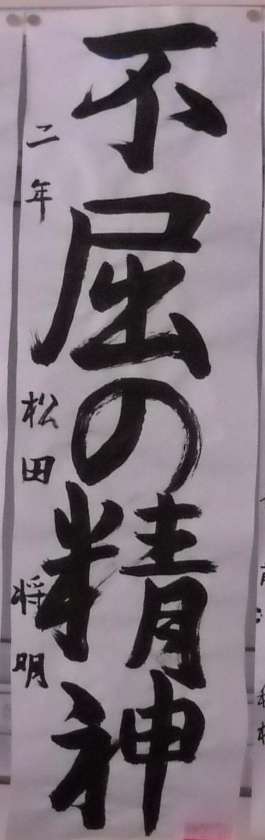 不屈の精神
二年 松田 将明